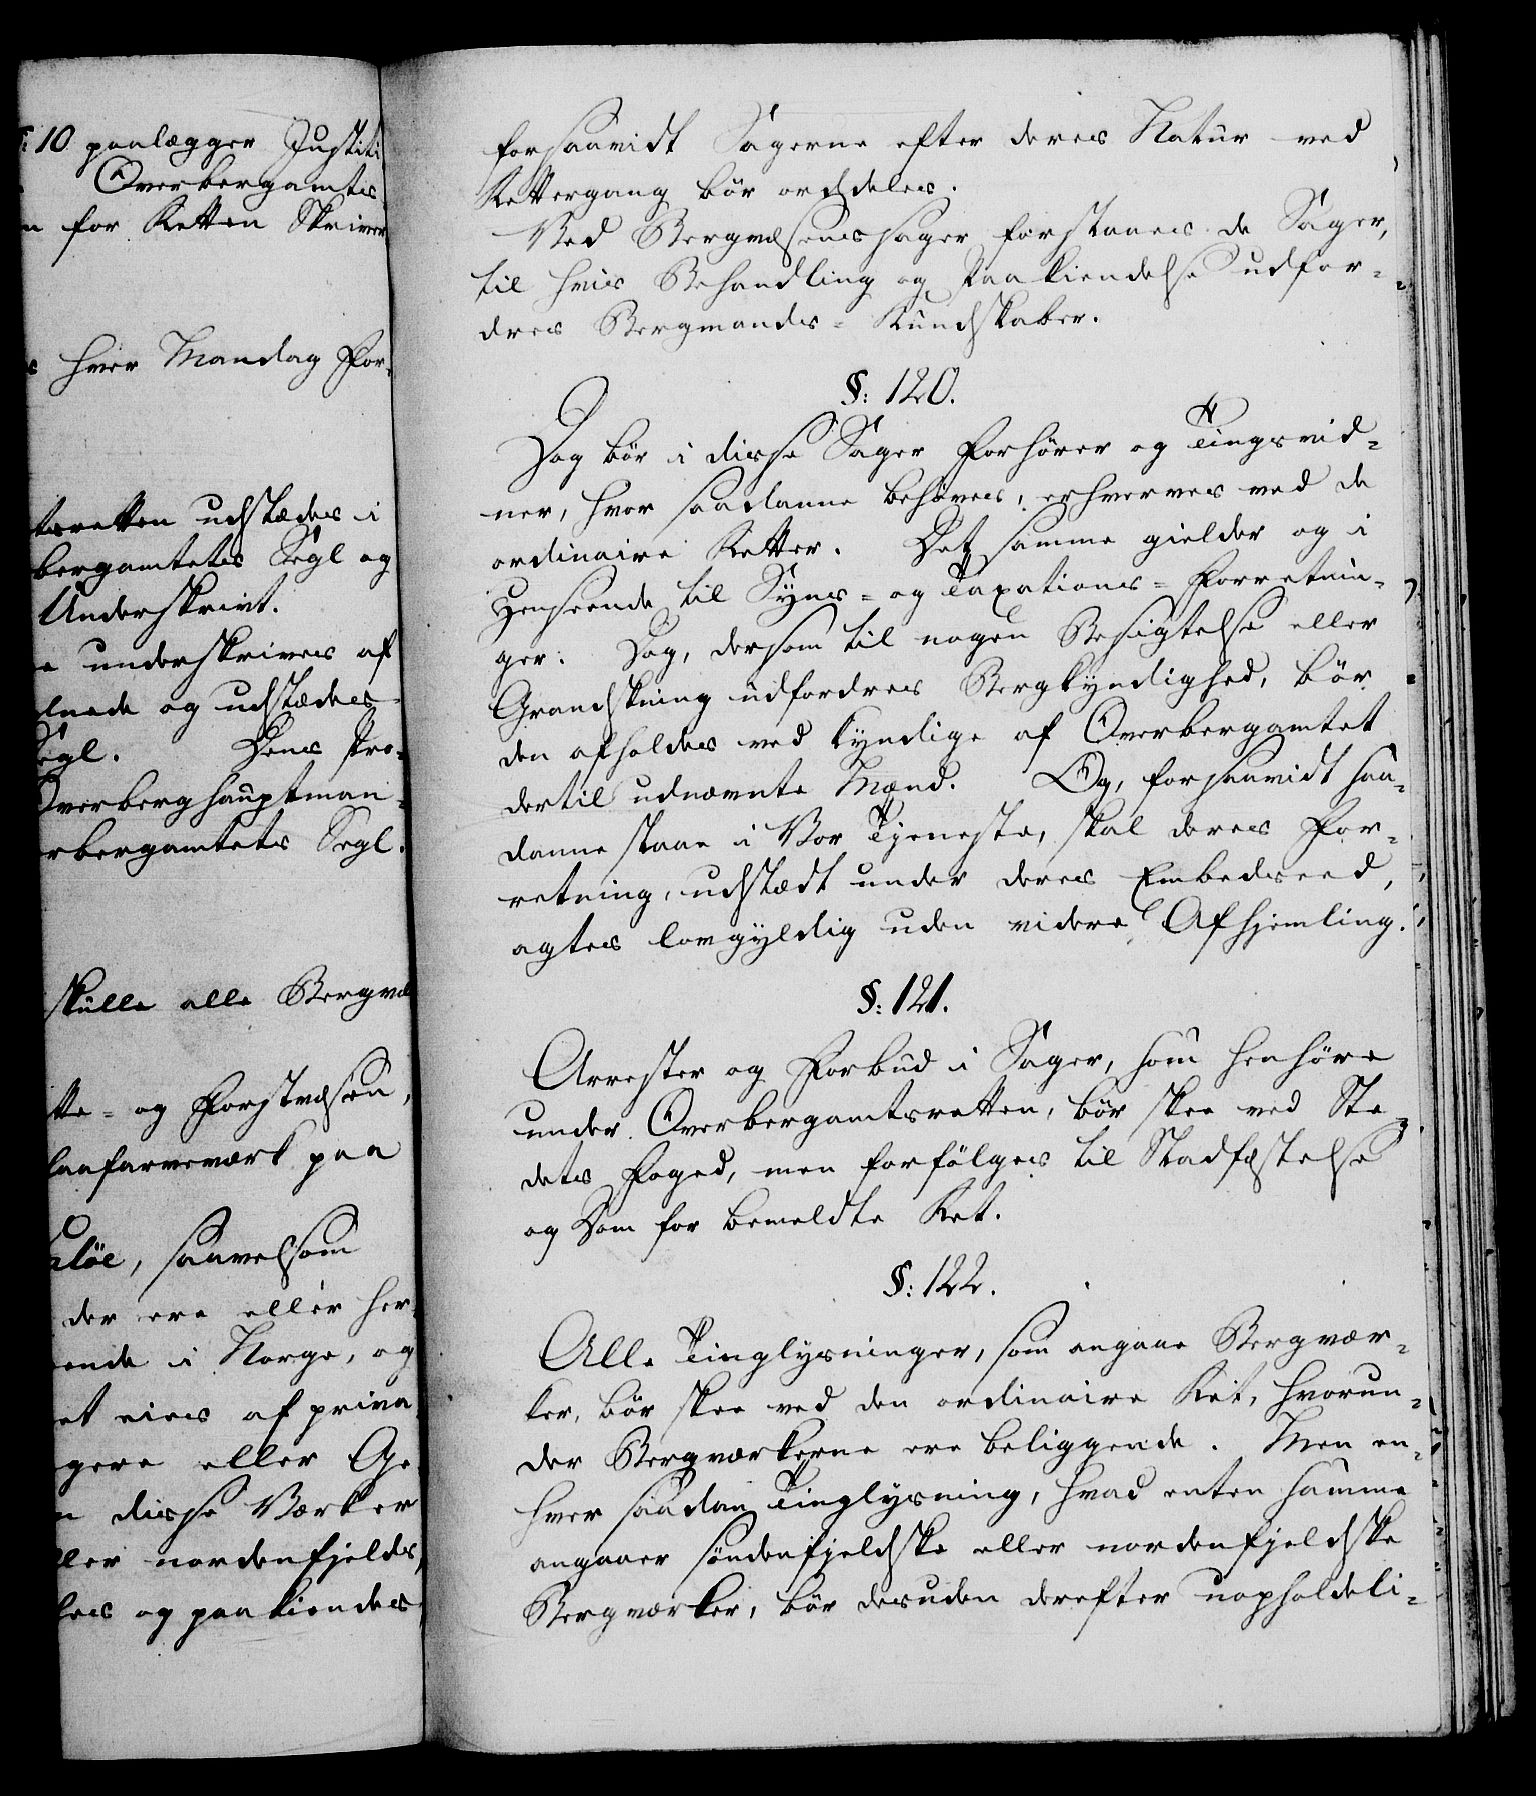 §: 10 paalægger Justiti
Overbergamtets
for Retten Skriver
hver Mandag for-
tsretten udstædes i
bergamtets Segl og
Underskrivt.
underskrives af
lnede og udstædes
Segl. Dens Pro-
Overberghauptman-
rbergamtets Segl.
skulle alle Bergvæ
tte- og Forstvæsen,
laafarveværk paa
løe, saavelsom
der ere eller her-
ende i Norge, og
et eies af priva
gere eller Ge
disse Værker
ller nordenfjelds,
les og paakiendes
forsaavidt Sagerne efter deres Natur ved
Rettergang bør orddeles.
Ved Bergvæsenssager forstaaes de Sager,
til hvis Behandling og Paakiendelse udfor-
dres Bergmands-Kundskaber.
§: 120.
Dog bør i disse Sager Forhører og Tingsvid-
ner, hvor saadanne behøves, erhverves ved de
ordinaire Retter. Det samme gielder og i
Henseende til Syns- og Taxations-Forretnin-
ger. Dog, dersom til nogen Besigtelse eller
Grandskning udfordres Bergkyndighed, bør
den afholdes ved kyndige af Overbergamtet
dertil udnævnte Mænd. Og, forsaavidt saa-
danne staae i Vor Tjeneste, skal deres For-
retning, udstædt under deres Embedseed,
agtes lovgyldig uden videre Afhjemling.
§: 121.
Arrester og Forbud i Sager, som henhøre
under Overbergamtsretten, bør skee ved Ste-
dets Foged, men forfølges til Stadfæstelse
og Dom for bemeldte Ret.
§: 122.
Alle Tinglysninger, som angaae Bergvær-
ker, bør skee ved den ordinaire Ret, hvorun-
der Bergværkerne ere beliggende. Men en-
hver saadan Tinglysning, hvad enten samme
angaaer søndenfjeldske eller nordenfjeldske
Bergværker, bør desuden derefter uopholdeli-